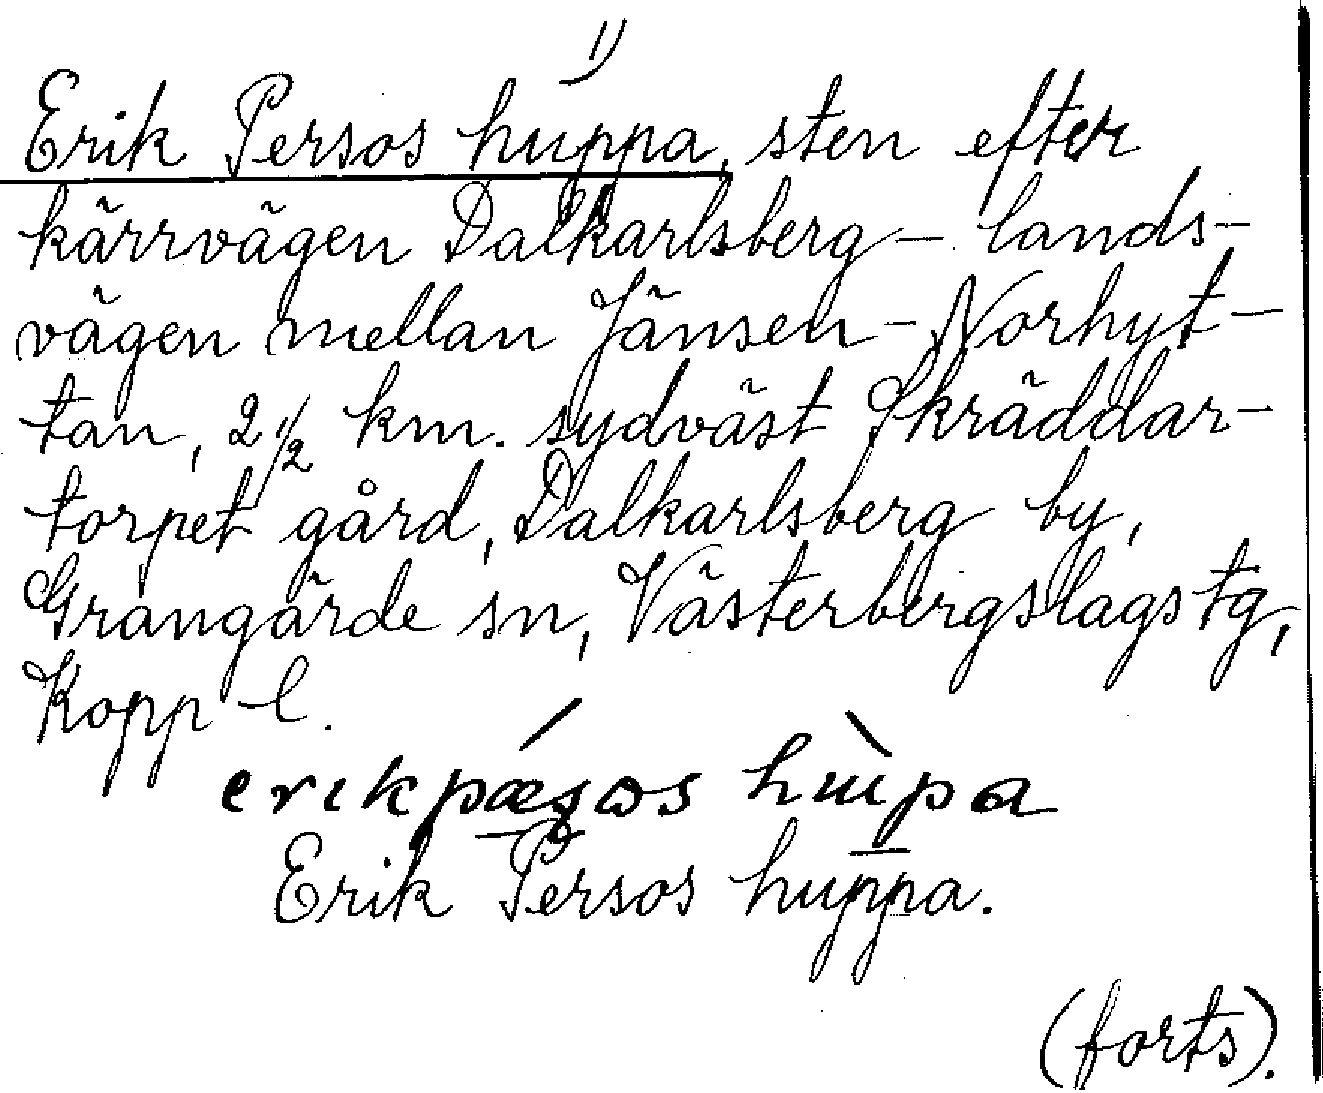 1)
Erik Persos huppa, sten efter
kärrvägen Dalkarlsberg - lands-
vägen mellan Jänsen - Norhyt-
tan, 2 1/2 km. sydväst Skräddar-
torpet gård, Dalkarlsberg by,
Grangärde sn, Västerbergslags tg,
Kopp l.
Erik Persos huppa.
(forts).